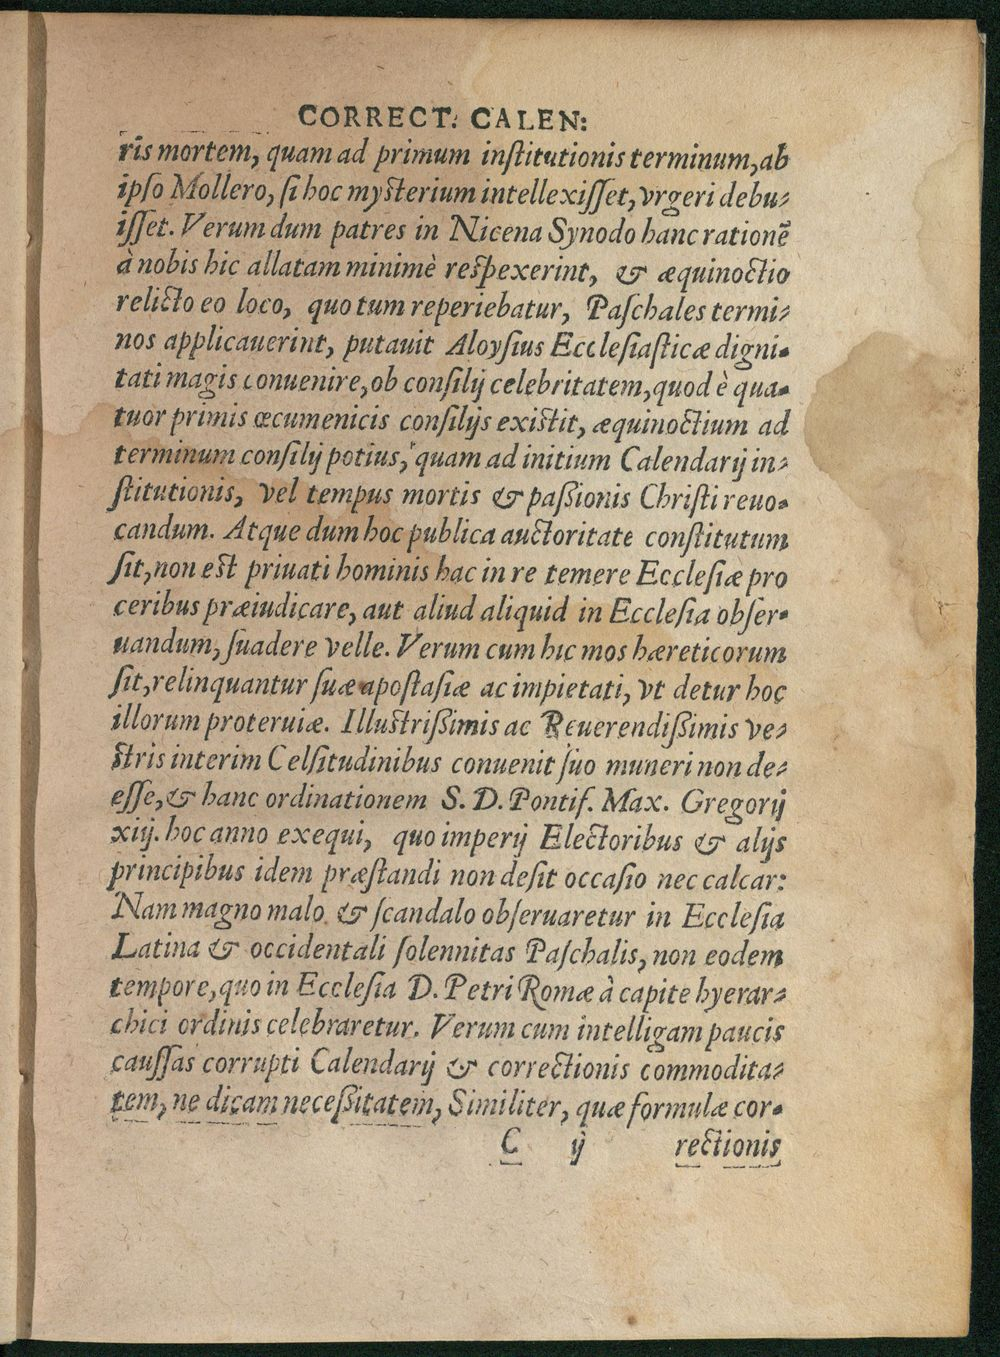 CORRECT. CALEN:
ris mortem, quam ad primum inſtitutionis terminum, ab
ipſo Mollero, ſi hoc myſterium intellexiſſet, vrgeri debu-
iſſet. Verum dum patres in Nicena Synodo hanc rationẽ
à nobis hic allatam minimè reſpexerint, & æquinoctio
relicto eo loco, quo tum reperiebatur, Paſchales termi-
nos applicauerint, putauit Aloyſius Eccleſiaſticæ digni-
tati magis conuenire, ob conſilij celebritatem, quod è qua-
tuor primis œcumenicis conſilijs exiſtit, æquinoctium ad
terminum conſilij potius, quam ad initium Calendarij in-
ſtitutionis, vel tempus mortis & paßionis Chriſti reuo-
candum. Atque dum hoc publica auctoritate conſtitutum
ſit, non eſt priuati hominis hac in re temere Eccleſiæ pro
ceribus præiudicare, aut aliud aliquid in Eccleſia obſer-
uandum, ſuadere velle. Verum cum hic mos hæreticorum
ſit, relinquantur ſuæ apoſtaſiæ ac impietati, vt detur hoc
illorum proteruiæ. Illuſtrißimis ac Reuerendißimis ve-
ſtris interim Celſitudinibus conuenit ſuo muneri non de-
eſſe, & hanc ordinationem S. D. Pontif. Max. Gregorij
xiij. hoc anno exequi, quo imperij Electoribus & alijs
principibus idem præſtandi non deſit occaſio nec calcar:
Nam magno malo & ſcandalo obſeruaretur in Eccleſia
Latina & occidentali ſolennitas Paſchalis, non eodem
tempore, quo in Eccleſia D. Petri Romæ à capite hyerar-
chici ordinis celebraretur. Verum cum intelligam paucis
cauſſas corrupti Calendarij & correctionis commodita-
tem, ne dicam neceßitatem, Similiter, quæ formulæ cor-
C ij rectionis